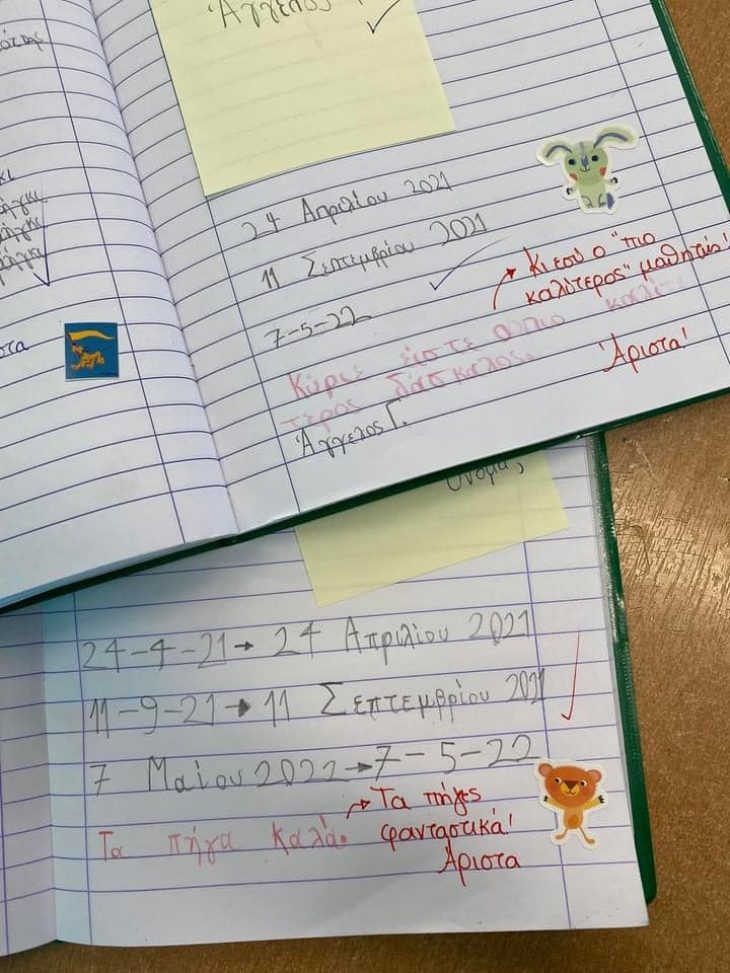 Άγγελος
24 Απριλίου 2021
11 Σεπτεμβρίου 2021
7-5-22
Κι εσύ ο "πιο
καλίτερος" μαθητής!
Κύριε είστε ο πιο καλί-
τερος δάσκαλος.
Άριστα!
Άγγελος Γ.
24-4-21→ 24 Απριλίου 2021
11-9-21→ 11 Σεπτεμβρίου 2021
7 Μαίου 2022→7-5-22
Τα πήγα καλά.
Τα πήγες
φανταστικά!
Άριστα